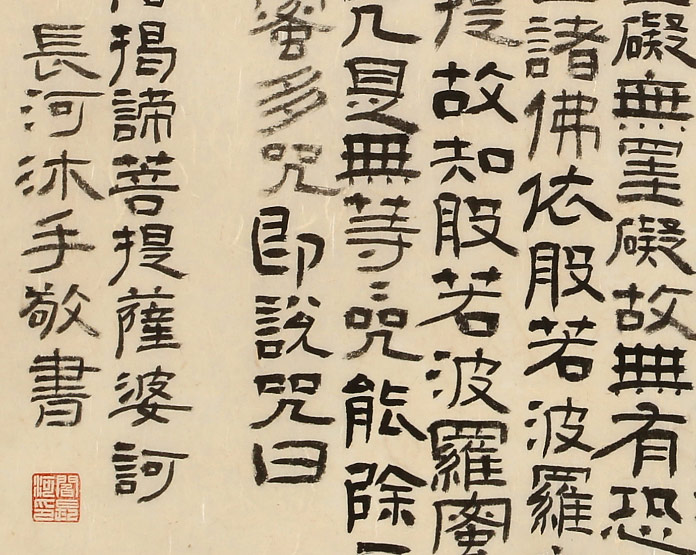 礙無罣礙故無有恐
諸佛依般若波羅
提故知般若波羅蜜
咒是無等〻咒能除
蜜多咒即說咒曰
揭諦菩提薩婆訶
長河沐手敬書
閻長河印